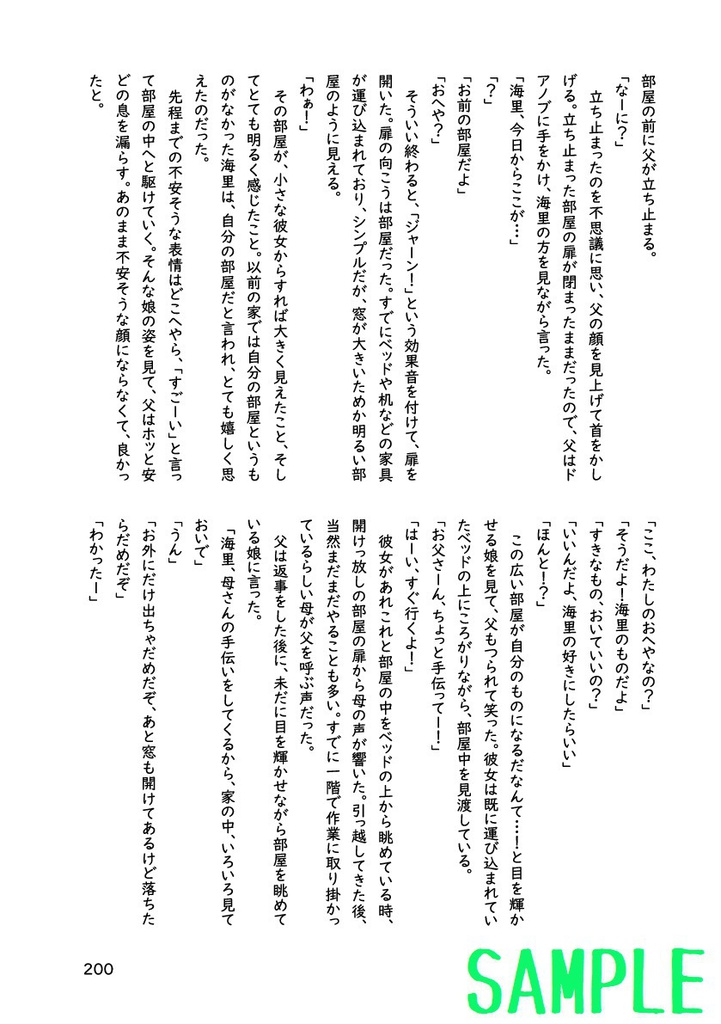 部屋の前に父が立ち止まる。
「なーに？」
　立ち止まったのを不思議に思い、父の顔を見上げて首をかし
げる。立ち止まった部屋の扉が閉まったままだったので、父はド
アノブに手をかけ、海里の方を見ながら言った。
「海里、今日からここが…」
「？」
「お前の部屋だよ」
「おへや？」
　そういい終わると、「ジャーン！」という効果音を付けて、扉を
開いた。扉の向こうは部屋だった。すでにベッドや机などの家具
が運び込まれており、シンプルだが、窓が大きいためか明るい部
屋のように見える。
「わぁ！」
　その部屋が、小さな彼女からすれば大きく見えたこと、そし
てとても明るく感じたこと。以前の家では自分の部屋というも
のがなかった海里は、自分の部屋だと言われ、とても嬉しく思
えたのだった。
　先程までの不安そうな表情はどこへやら、「すごーい」と言っ
て部屋の中へと駆けていく。そんな娘の姿を見て、父はホッと安
どの息を漏らす。あのまま不安そうな顔にならなくて、良かっ
たと。
「ここ、わたしのおへやなの？」
「そうだよ！海里のものだよ」
「すきなもの、おいていいの？」
「いいんだよ、海里の好きにしたらいい」
「ほんと！？」
　この広い部屋が自分のものになるだなんて…！と目を輝か
せる娘を見て、父もつられて笑った。彼女は既に運び込まれてい
たベッドの上にころがりながら、部屋中を見渡している。
「お父さーん、ちょっと手伝ってー！」
「はーい、すぐ行くよ！」
　彼女があれこれと部屋の中をベッドの上から眺めている時、
開けっ放しの部屋の扉から母の声が響いた。引っ越してきた後、
当然まだまだやることも多い。すでに一階で作業に取り掛かっ
ているらしい母が父を呼ぶ声だった。
　父は返事をした後に、未だに目を輝かせながら部屋を眺めて
いる娘に言った。
「海里、母さんの手伝いをしてくるから、家の中、いろいろ見て
おいで」
「うん」
「お外にだけ出ちゃだめだぞ、あと窓も開けてあるけど落ちた
らだめだぞ」
「わかったー」
200
SAMPLE